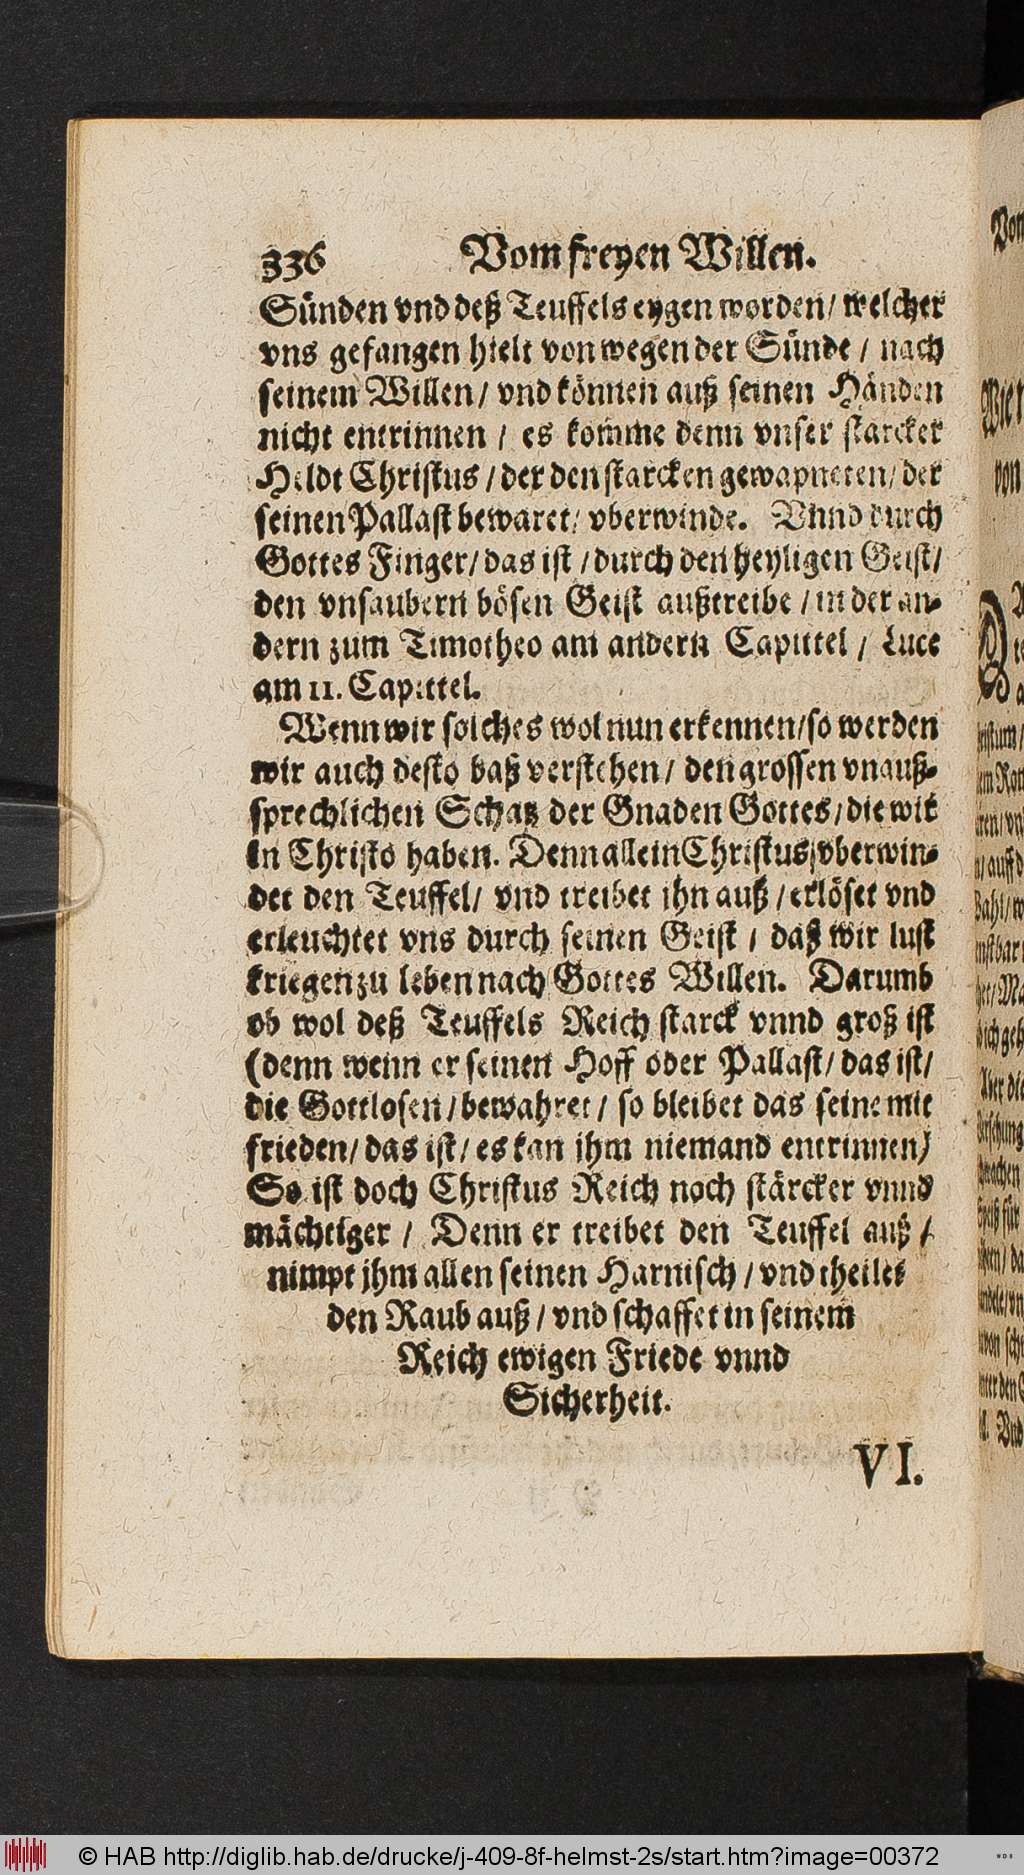 336 Vom freyen Willen.
Sünden vnd deß Teuffels eygen worden/ welcher
vns gefangen hielt von wegen der Sünde / nach
seinem Willen/ vnd können auß seinen Händen
nicht entrinnen / es komme denn vnser starcker
Heldt Christus / der den starcken gewapneten/ der
seinen Pallast bewaret/ vberwinde. Vnnd durch
Gottes Finger/ das ist / durch den heyligen Geist/
den vnsaubern bösen Geist außtreibe / in der an-
dern zum Timotheo am andern Capittel / Luce
am 11. Capittel.
Wenn wir solches wol nun erkennen/ so werden
wir auch desto baß verstehen/ den grossen vnauß-
sprechlichen Schatz der Gnaden Gottes/ die wir
in Christo haben. Denn allein Christus vberwin-
det den Teuffel/ vnd treibet jhn auß / erlöset vnd
erleuchtet vns durch seinen Geist / daß wir lust
kriegen zu leben nach Gottes Willen. Darumb
ob wol deß Teuffels Reich starck vnnd groß ist
(denn wenn er seinen Hoff oder Pallast/ das ist/
die Gottlosen / bewahret / so bleibet das seine mit
frieden/ das ist/ es kan jhm niemand entrinnen)
So ist doch Christus Reich noch stärcker vnnd
mächtiger / Denn er treibet den Teuffel auß /
nimpt jhm allen seinen Harnisch / vnd theilet
den Raub auß / vnd schaffet in seinem
Reich ewigen Friede vnnd
Sicherheit.
VI.
© HAB http://diglib.hab.de/drucke/j-409-8f-helmst-2s/start.htm?image=00372